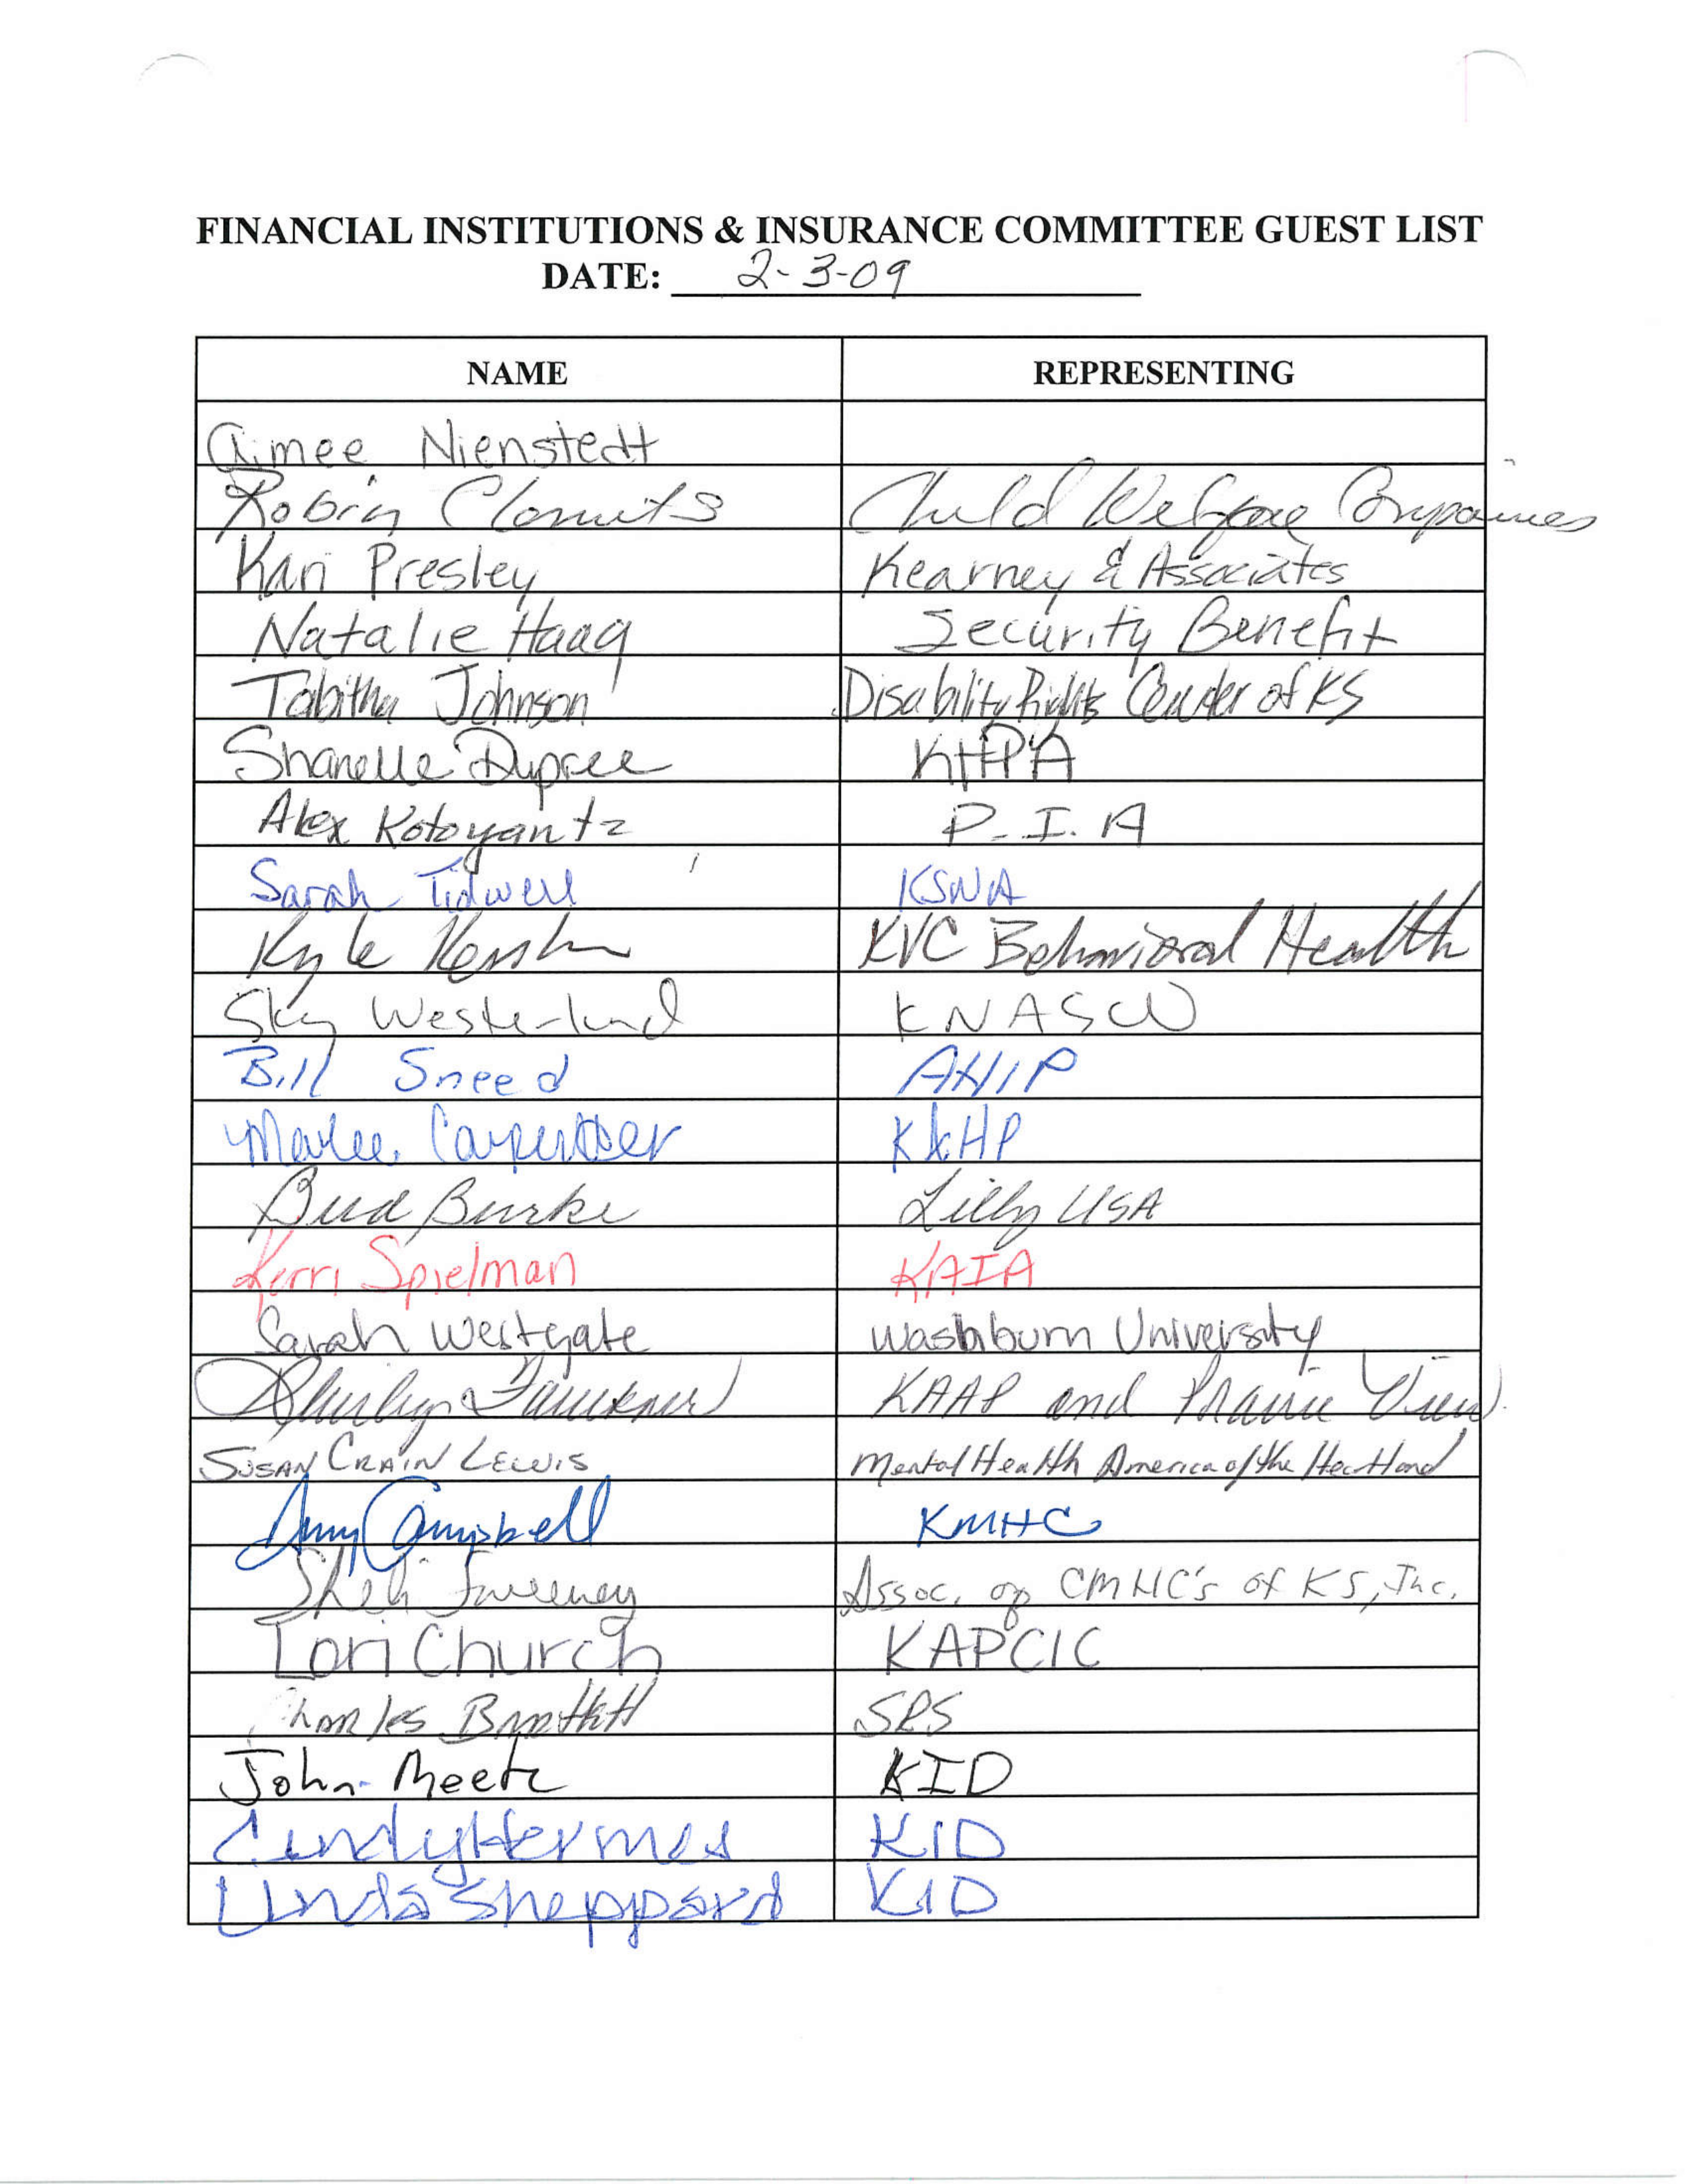 FINANCIAL INSTITUTIONS & INSURANCE COMMITTEE GUEST LIST
DATE: 2-3-09
NAME REPRESENTING
Aimee Nienstedt
Robin Clements Child Welfare Companies
Kari Presley Kearney & Associates
Natalie Haag Security Benefit
Tabitha Johnson Disability Rights Center of KS
Shanelle Dupree KHPA
Alex Kotoyantz P.I.A
Sarah Tidwell KSNA
Kyle Kessler KVC Behavioral Health
Sky Westerlund KNASW
Bill Sneed AHIP
Marlee Carpenter KAHP
Bud Burke Lilly USA
Kerri Spielman KAIA
Sarah Westgate Washburn University
Faulkner KAAP and Prairie View
SUSAN CRAIN LEWIS Mental Health America of the Heartland
Amy Campbell KMHC
Sheli Sweeney Assoc. of CMHC's of KS, Inc.
Lori Church KAPCIC
Charles Bartlett SRS
John Meetz KID
Cindy Hermes KID
Linda Sheppard KID